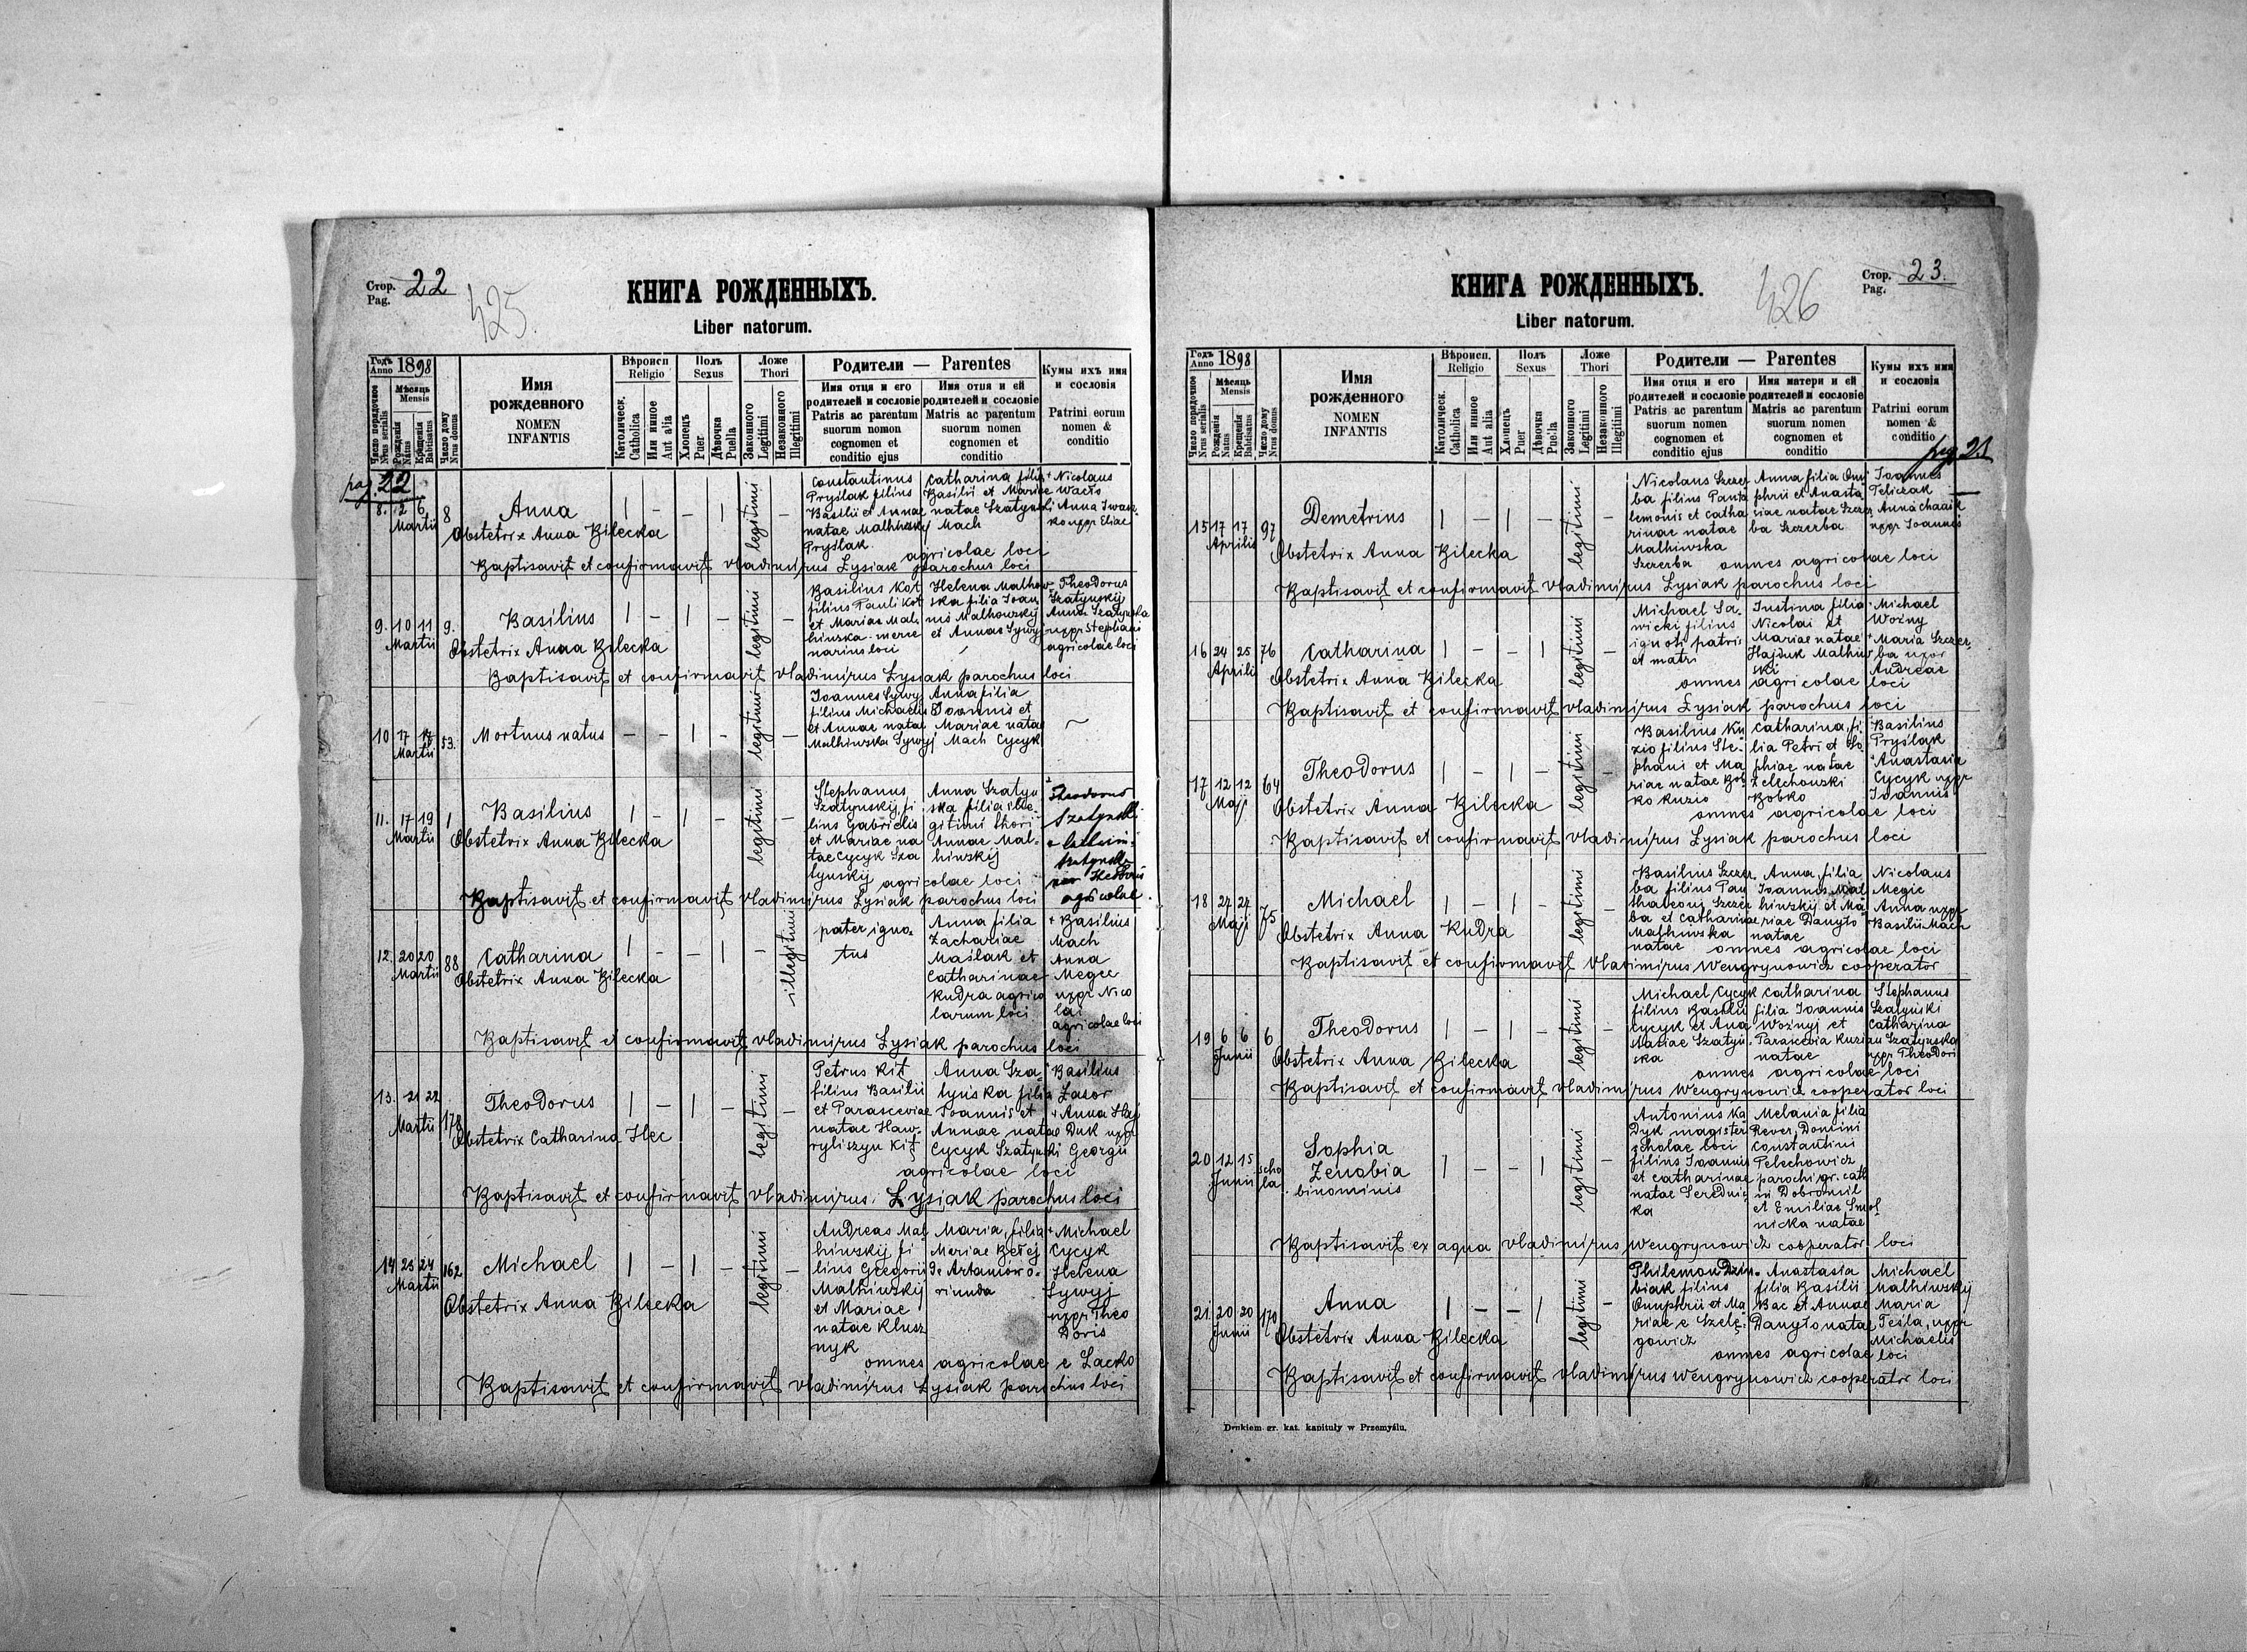 Стор. 22
Pag.
425
КНИГА РОЖДЕННЫХЪ.
Liber natorum.
Годъ 1898
Anno
Мѣсяць
Mensis
Число порядочное
Nrus serialis
Рожденія
Natus
Крещенія
Babtisatus
Число дому
Nrus domus
Имя
рожденного
NOMEN
INFANTIS
Вѣроисп
Religio
Католическ.
Catholica
Или инное
Aut alia
Полъ
Sexus
Хлопець
Puer
Дѣвочка
Puella
Ложе
Thori
Законного
Legitimi
Незаконного
Illegitimi
Родители — Parentes
Имя отця и его
родителей и сословіе
Patris ac parentum
suorum nomon
cognomen et
conditio ejus
Имя отця и ей
родителей и сословіе
Matris ac parentum
suorum nomen
cognomen et
conditio
Кумы ихъ имя
и сословія
Patrini eorum
nomen &
conditio
pag. 22
8. 2 6 Martii 8
Anna
Obstetrix Anna Bilecka
legitimi
Constantinus
Pryślak filius
Basilii et Annae
natae Malhinskij
Pryślak
Catharina filia
Basilii et Mariae
natae Szatynski
Mach
agricolae loci
Nicolaus
Anna Iwasz
ko uxor Eliae
Baptisavit et confirmavit Vladimirus Łysiak parochus loci
9. 10 11 Martii 9.
Basilius
Obstetrix Anna Bilecka
legitimi
Basilius Kot
filius Pauli Kot
et Mariae Mal
hinska merce
narius loci
Helena Malhow
ska filia Ioan
nis Malhowskij
et Annae Sywyj
Theodorus
Szatynskij
Anna Szatynska
uxor Stephani
agricolae loci
Baptisavit et confirmavit Vladimirus Łysiak parochus loci
10 17 17 Martii 53.
Mortuus natus
legitimi
Ioannes Sywyj
filius Michaelis
et Annae natae
Malhinska Sywyj
Anna filia
Ioannis et
Mariae natae
Mach Cycyk
11. 17 19 Martii 1
Basilius
Obstetrix Anna Bilecka
legitimi
Stephanus
Szatynskij fi
lius Gabrielis
et Mariae na
tae Cycyk Sza
tynskij
Anna Szatyn
ska filia ille
gitimi thori
Annae Mal
hinskij
agricolae loci
Theodorus
agricolae
Baptisavit et confirmavit Vladimirus Łysiak parochus loci
12. 20 20 Martii 88
Catharina
Obstetrix Anna Bilecka
illegitimi
pater igno
tus
Anna filia
Zachariae
Maślak et
Catharinae
Kudra agrico
larum loci
Basilius
Mach
Anna
Megec
uxor Nico
lai
agricolae loci
Baptisavit et confirmavit Vladimirus Łysiak parochus loci
13. 21 22 Martii 178
Theodorus
Obstetrix Catharina Hec
legitimi
Petrus Kit
filius Basilii
et Parasceviae
natae Haw
ryliszyn Kit
Anna Sza
tynska filia
Ioannis et
Annae natae
Cycyk Szatynski
agricolae loci
Basilius
Łazor
Anna Haj
Duk uxor
Georgii
Baptisavit et confirmavit Vladimirus Łysiak parochus loci
14 23 24 Martii 162
Michael
Obstetrix Anna Bilecka
legitimi
Andreas Mal
hinskij fi
lius Gregorii
Malhinskij
et Mariae
natae Klusz
nyk
Maria, filia
Mariae Berej
de Artamów o
riunda
Michael
Cycyk
Helena
Sywyj
uxor Theo
Doris
omnes agricolae e Lacko
Baptisavit et confirmavit Vladimirus Łysiak parochus loci
Стор. 23.
Pag.
426
КНИГА РОЖДЕННЫХЪ.
Liber natorum.
Годъ 1898
Anno
Мѣсяць
Mensis
Число порядочное
Nrus serialis
Рожденія
Natus
Крещенія
Babtisatus
Число дому
Nrus domus
Имя
рожденного
NOMEN
INFANTIS
Вѣроисп.
Religio
Католическ.
Catholica
Или инное
Aut alia
Полъ
Sexus
Хлопець
Puer
Дѣвочка
Puella
Ложе
Thori
Законного
Legitimi
Незаконного
Illegitimi
Родители — Parentes
Имя отця и его
родителей и сословіе
Patris ac parentum
suorum nomen
cognomen et
conditio ejus
Имя матери и ей
родителей и сословіе
Matris ac parentum
suorum nomen
cognomen et
conditio
Кумы ихъ имя
и сословія
Patrini eorum
nomen &
conditio
pag 21
15 17 17 Aprilis 97
Demetrius
Obstetrix Anna Bilecka
legitimi
Nicolaus Szczer
ba filius Panta
lemonis et Catha
rinae natae
Malhiwska
Szczerba
Anna filia Onu
phrii et Anasta
ciae natae Szczer
ba Szczerba
Ioannes
Pelczak
Anna
uxor Ioannis
omnes agricolae loci
Baptisavit et confirmavit Vladimirus Łysiak parochus loci
16 24 25 Aprilis 76
Catharina
Obstetrix Anna Bilecka
legitimi
Michael Sa
wicki filius
ignoti patris
et matri
Iustina filia
Nicolai et
Mariae natae
Hajduk Malhiw
ski
Michael
Woźny
Maria Szczer
ba uxor
Andreae
omnes agricolae loci
Baptisavit et confirmavit Vladimirus Łysiak parochus loci
17 12 12 Maji 64
Theodorus
Obstetrix Anna Bilecka
legitimi
Basilius Ku
zio filius Ste
phani et Ma
riae natae Bob
ko Kuzio
Catharina, fi
lia Petri et So
phiae natae
Zelechowski
Bobko
Basilius
Pryślak
Anastasia
Cycyk uxor
Ioannis
omnes agricolae loci
Baptisavit et confirmavit Vladimirus Łysiak parochus loci
18 24 24 Maji 75
Michael
Obstetrix Anna Kudra
legitimi
Basilius Szczer
ba filius Pan
thaleoni Szczer
ba et Catharinae
Malhiwska
natae
Anna, filia
Ioannes Mal
hinskij et Ma
riae Danyło
natae
Nicolaus
Megec
Anna uxor
Basilii Mach
omnes agricolae loci
Baptisavit et confirmavit Vladimirus Wengrynowicz cooperator
19 6 6 Junii 6
Theodorus
Obstetrix Anna Bilecka
legitimi
Michael Cycyk
filius Basilii
Cycyk et Ana
stasiae Szatyn
ska
Catharina
filia Ioannis
Woźnyj et
Parascevia Kuzian
natae
Stephanus
Szatynski
Catharina
Szatynska
uxor Theodori
omnes agricolae loci
Baptisavit et confirmavit Vladimirus Wengrynowicz cooperator loci
20 12 15 Junii scho
la
Sophia
Zenobia
binominis
legitimi
Antonius Ka
Dyk magister
scholae loci
filius Ioannis
et Catharinae
natae Seredni
ka
Melania filia
Rever. Domini
Constantini
Pelechowicz
parochi gr. cath
in Dobromil
et Emiliae Smol
nicka natae
Baptisavit ex aqua Vladimirus Wengrynowicz cooperator loci
21. 20 20 Junii 170
Anna
Obstetrix Anna Bilecka
legitimi
Philemon Dziu
biak filius
Onuphrii et Ma
riae e Szelę
gowicz
Anastasia
filia Basilii
Bac et Annae
Danyło natae
Michael
Malhiwskij
Maria
Tesla, uxor
Michaelis
omnes agricolae loci
Baptisavit et confirmavit Vladimirus Wengrynowicz cooperator loci
Drukiem gr. kat. kapituły w Przemyślu.